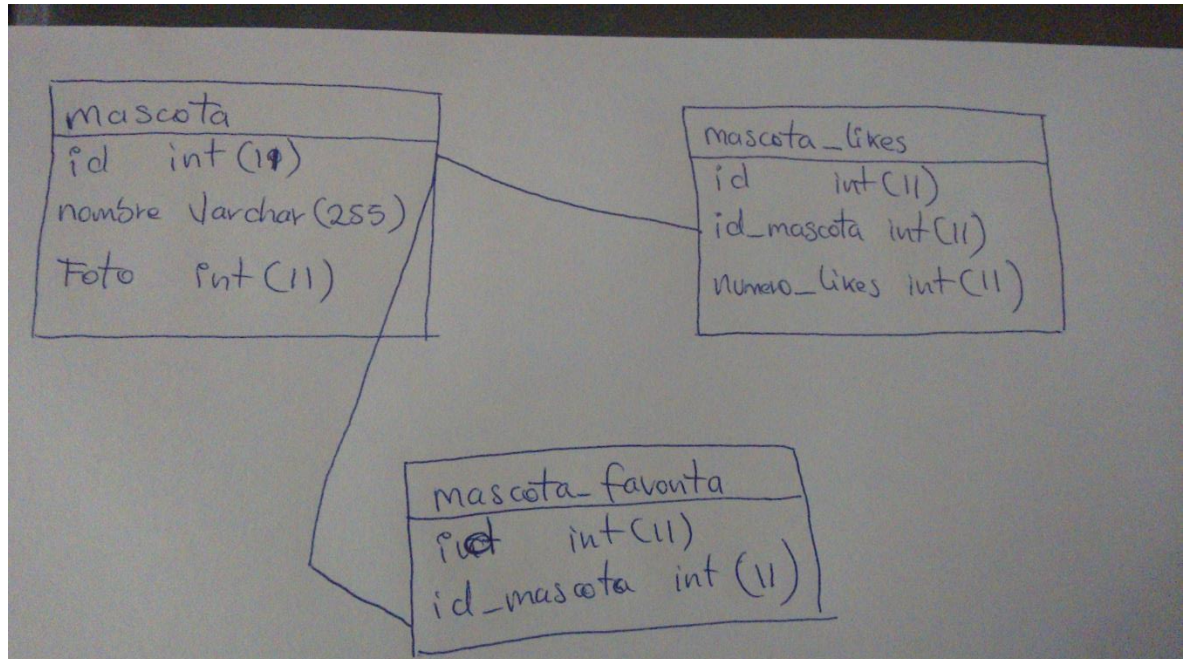 mascota
id int(11)
nombre Varchar(255)
Foto int(11)
mascota_likes
id int(11)
id_mascota int(11)
numero_likes int(11)
mascota_favorita
id int(11)
id_mascota int(11)